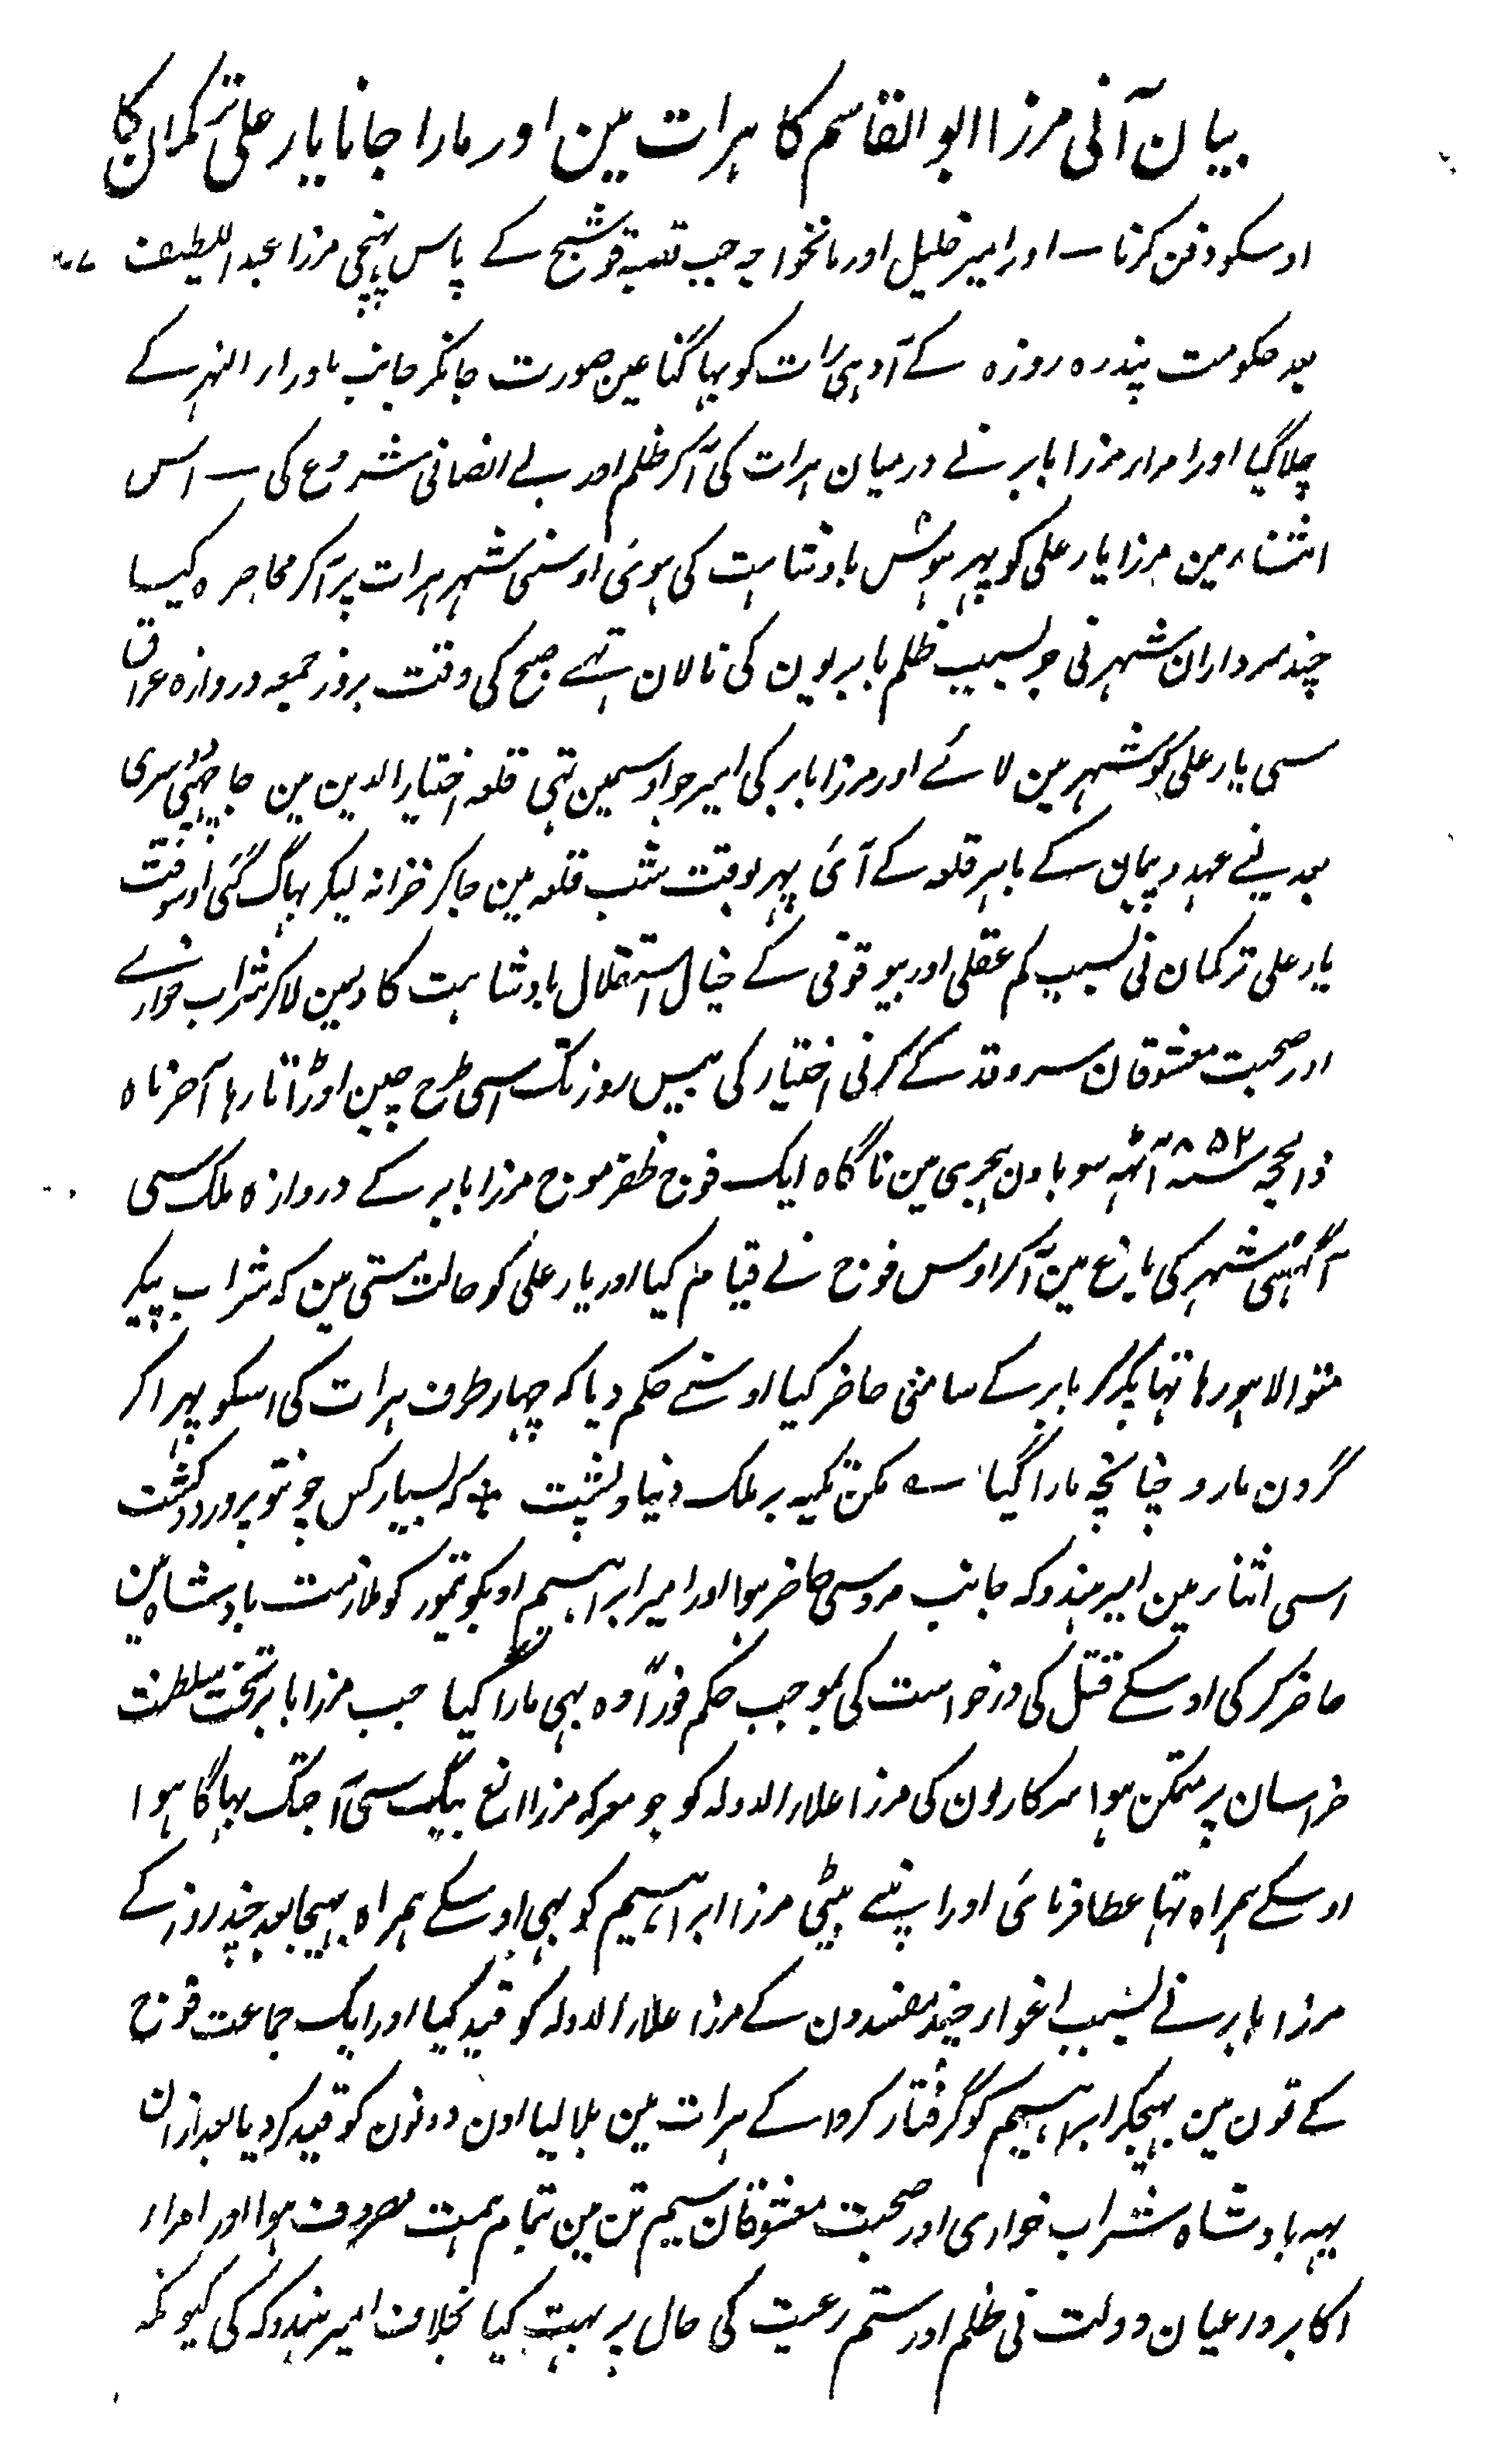 بیان آنی مرزا ابوالقاسم کا ہرات مین اور مارا جانا یار علی ترکمان کا
اوسکو دفن کرنا — اور امیر خلیل اور مانخواجہ جب قصبہ قوشج کے پاس پہنچی مرزا عبداللطیف
بعد حکومت پندرہ روزہ کے آدہی رات کو بہاگنا عین صورت جانکر جانب ماوراء النہر کے
چلاگیا اور امراء مرزا بابر نے درمیان ہرات کی آکر ظلم اور بے انصافی شروع کی — اس
اثناء مین مرزا یار علی کو پہر ہوش بادشاہت کی ہوئی اوسنی شہر ہرات پر آکر محاصرہ کیا
چند سرداران شہر نی جو بسبب ظلم بابریون کی نالان تہے صبح کی وقت بروز جمعہ دروازہ عراق
سی یار علی کو شہر مین لائے اور مرزا بابر کی امیر جو اوسمین تہی قلعہ اختیار الدین مین جا چہپی
بعد لینے عہد و پیمان کے باہر قلعہ کے آئی پہر بوقت شب قلعہ مین جاکر خزانہ لیکر بہاگ گئی اوسوقت
یار علی ترکمان نی بسبب کم عقلی اور بیوقوفی کے خیال استقلال بادشاہت کا دلمین لاکر شراب خوارے
اور صحبت معشوقان سروقد کے کرنی اختیار کی بیس روز تک اسی طرح چین اوڑاتا رہا آخر ماہ
ذالحجہ سنہ ۸۵۲ آٹہہ سو باون ہجری مین ناگاہ ایک فوج ظفر موج مرزا بابر کے دروازہ ملک سی
آگہسی شہر کی باغ مین آکر اوس فوج نے قیام کیا اور یار علی کو حالت مستی مین کہ شراب پیکر
متوالا ہو رہا تہا پکڑ کر بابر کے سامنی حاضر کیا اوسنے حکم دیا کہ چہار طرف ہرات کی اسکو پہرا کر
گردن مارو چنانچہ مارا گیا ؎ مکن تکیہ بر ملک دنیا و پشت * کہ بسیار کس چو تو پرورد و کشت
اسی اثناء مین امیر ہندوکہ جانب مرو سی حاضر ہوا اور امیر ابراہیم اویکو تمور کو ملازمت بادشاہ مین
حاضر کر کی اوسکے قتل کی درخواست کی بموجب حکم فوراً وہ بہی مارا گیا جب مرزا بابر تخت سلطنت
خراسان پر متمکن ہوا سرکار تون کی مرزا علاء الدولہ کو جو معرکہ مرزا الغ بیگ سی آجتک بہاگا ہوا
اوسکے ہمراہ تہا عطا فرمائی اور اپنے بیٹی مرزا ابراہیم کو بہی اوسکے ہمراہ بہیجا بعد چند روز کے
مرزا بابر نے بسبب اغواء چند مفسدون کے مرزا علاء الدولہ کو قید کیا اور ایک جماعت فوج
کے تون مین بہیجکر ابراہیم کو گرفتار کروا کے ہرات مین بلا لیا اون دونون کو قید کردیا بعد ازان
یہہ بادشاہ شراب خواری اور صحبت معشوقان سیم تن مین بتمام ہمت مصروف ہوا اور امراء
اکابر و اعیان دولت نی ظلم اور ستم رعیت کی حال پر بہت کیا بخلاف امیر ہندوکہ کی کیونکہ